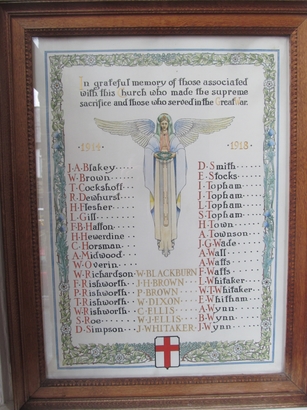 In grateful memory of those associated
with this Church who made the supreme
sacrifice and those who served in the Great War.
1914 1918
J·A·Blakey
W·Brown
T·Cockshott
R·Dewhurst
H·Flesher
L·Gill
F·B·Hatton
H·Hewerdine
C·Horsman
A·Midwood
W·Overin
W·Richardson
F·Rishworth
P·Rishworth
T·Rishworth
W·Rishworth
S·Roe
D·Simpson
W·BLACKBURN
J·H·BROWN
P·BROWN
W·DIXON
C·ELLIS
W·J·ELLIS
J·WHITAKER
D·Smith
E·Stocks
I·Topham
J·Topham
L·Topham
S·Topham
H·Town
A·Townson
J·G·Wade
A·Wall
A·Watts
F·Watts
L·Whitaker
W·T·Whitaker
E·Whitham
A·Wynn
B·Wynn
J·Wynn